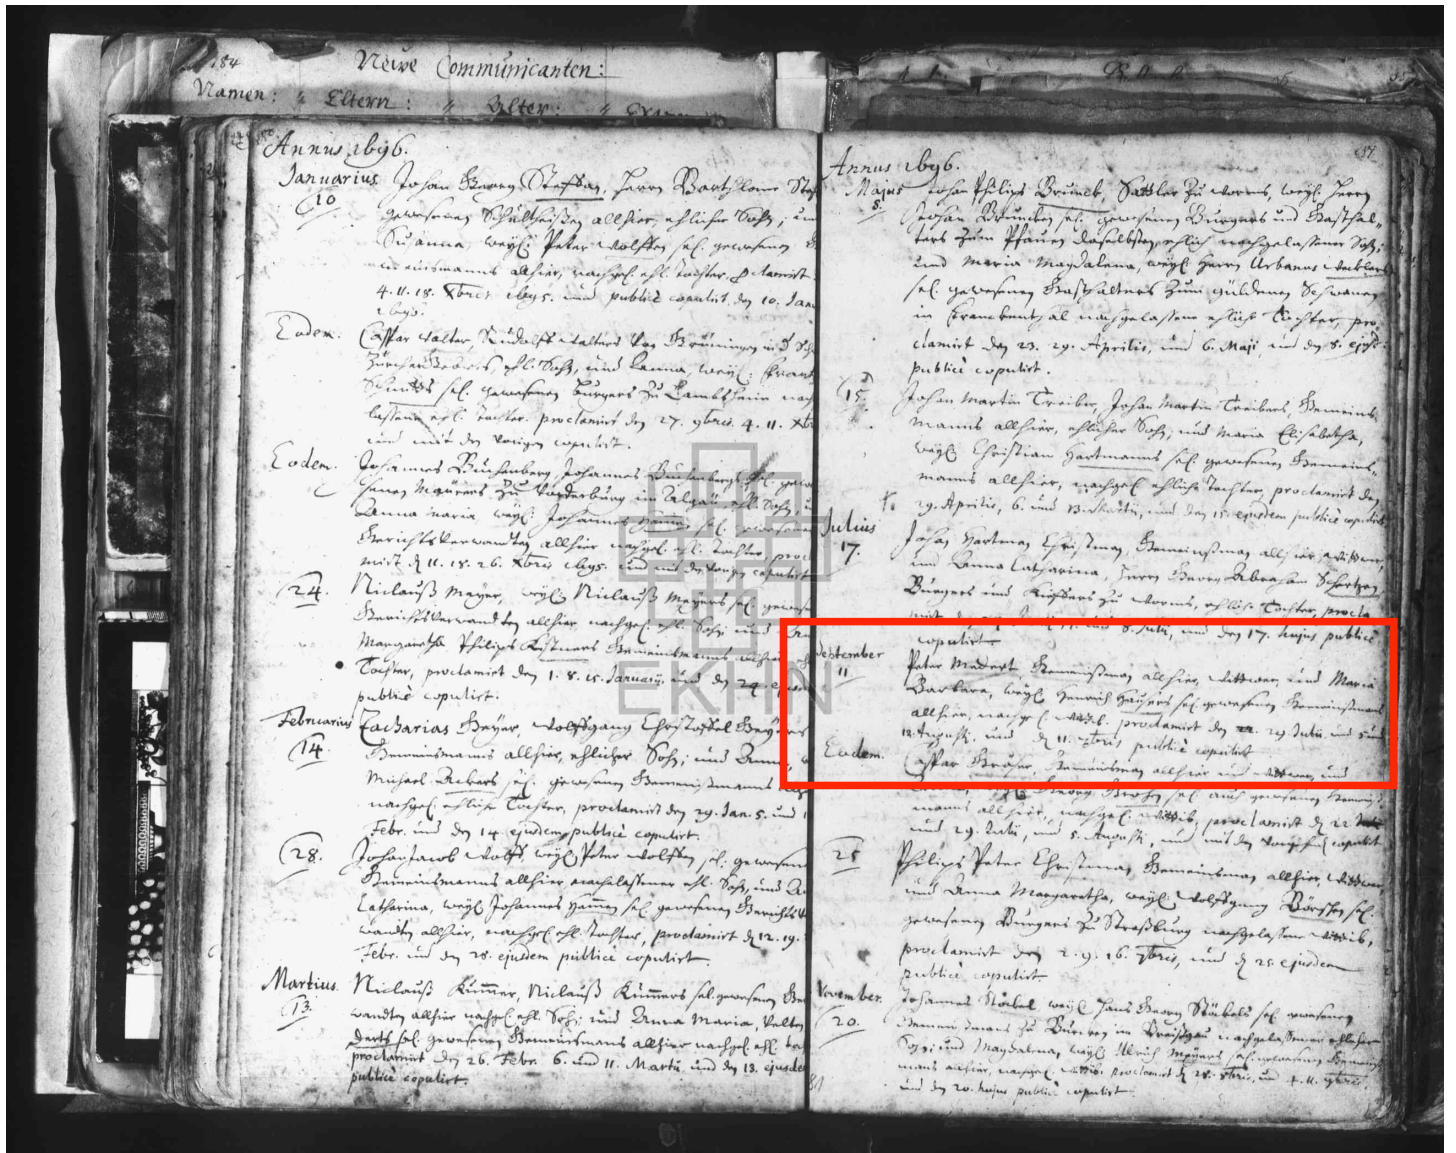 184
Neüe Communicanten:
Namen: " Eltern: " Alter: "
Annus 1696.
Januarius. Johan Georg Steffan, Herrn Barthlome
10 gewesenen Schultheißen allhier, ehlicher Sohn; und
Susanna, weyl. Peter Wolffen sel. gewesenen
meinsmanns allhier, nachgel. ehl. Tochter, proclamirt
4. 11. 18. Xbris 1695. und publicè copulirt den 10. Jan
1696.
Eodem. Caspar Walter, Rudolff Walters von Grüningen
ehl. Sohn, und Anna, weyl.
sel. gewesenen Burgers zu Lambsheim nach
lassene ehl. Tochter. proclamirt den 27. 9bris. 4. 11. Xbr
und mit den vorigen copulirt.
Eodem. Johannes Buchenberg, Johannes Buchenbergs sel. gewe
senen Maurers zu Vorderburg im Algäu ehl. Sohn, u
Anna Maria, weyl. Johannes Hammen sel. gewesenen
Gerichtsverwandten allhier nachgel. ehl. Tochter, procl
mirt d 11. 18. 26. Xbris 1695. und mit den vorigen copulirt
24. Niclauß Meyer, weyl. Niclauß Meyers sel. gewese
Gerichtsverwandten allhier nachgel. ehl. Sohn, und
Margaretha Philips Kistners Gemeinsmanns allhier
Tochter, proclamirt den 1. 8. 15. Januarij. und den 24. ejusd
publicè copulirt.
Februarius Zacharias Geyer, Wolffgang Christoffel Geyers
14. Gemeinsmanns allhier, ehlicher Sohn; und Anna,
Michael sel. gewesenen Gemeinsmanns
nachgel. ehliche Tochter, proclamirt den 29. Jan. 5. und
Febr. und den 14. ejusdem publicè copulirt.
28. Johan Jacob Wolff, weyl. Peter Wolffen sel. gewesenen
Gemeinsmanns allhier, nachgelassener ehl. Sohn, und
Catharina, weyl. Johannes Hammen sel. gewesenen Gerichts
wandten allhier, nachgel. ehl. Tochter, proclamirt d 12. 19.
Febr. und den 28. ejusdem publicè copulirt.
Martius. Niclauß Kümmer, Niclauß Kümmers sel. gewesenen
13. wandten allhier nachgel. ehl. Sohn; und Anna Maria, Velten
derts sel. gewesenen Gemeinsmanns allhier nachgel. ehl.
proclamirt den 26. Febr. 6. und 11. Martii. und den 13. ejusdem
publicè copulirt.
Annus 1696.
Majus Johan Philips Brünck, Sattler zu Worms, weyl. Herrn
8. Johan Brüncken sel. gewesenen Burgers und Gasthal-
ters zum Pfauen daselbsten, ehlich nachgelassener Sohn;
und Maria Magdalena, weyl. Herrn Urbanus
sel. gewesenen Gasthalters zum güldenen Schwanen
in Franckenthal nachgelassene ehliche Tochter, pro-
clamirt den 23. 29. Aprilis, und 6. Maji und den 8. ejusd.
publicè copulirt.
15. Johan Martin Treiber, Johan Martin Treibers Gemeins
manns allhier, ehlicher Sohn; und Maria Elisabetha,
weyl. Christian Hartmanns sel. gewesenen Gemeins-
manns allhier, nachgel. ehliche Tochter, proclamirt den
29. Aprilis, 6. und 13. und den 15. ejusdem publicè copulirt
Julius Johan Hartman Christman, Gemeinsman allhier, wittwer,
17. und Anna Catharina, Herrn Georg Abraham
Burgers und Küffers zu Worms, ehliche Tochter, procla
und 8. Julii, und den 17. hujus publicè
copulirt
September Peter Medert Gemeinsman allhier, wittwer, und Maria
11 Barbara, weyl. Henrich Haußers sel. gewesenen Gemeinsmans
allhier, nachgel. wittib. proclamirt den 22. 29. Julii und 5. und
12. Augusti. und d 11. 7bris publicè copulirt
Eodem. Caspar Gemeinsman allhier und wittwer, und
weyl. Georg sel. auch gewesenen Gemeins
manns allhier, nachgel. wittib, proclamirt d 22
und 29. Julii, und 5. Augusti, und mit den copulirt
25 Philips Peter Christman, Gemeinsman allhier, wittwer
und Anna Margaretha, weyl. Wolffgang sel.
gewesenen Burgers zu Straßburg nachgelassene wittib,
proclamirt den 2. 9. 16. 7bris, und d 25. ejusdem
publicè copulirt.
November. Johannes Stöckel weyl. Hans Georg Stöckels sel. gewesenen
20. Gemeinsmans zu im Breißgau nachgelassener ehlicher
Sohn; und Magdalena, weyl. Ulrich Meyers sel. gewesenen Gemeins
mans allhier, nachgel. wittib. proclamirt d 28. 8bris, und 4. 11. 9bris.
und den 20. hujus publicè copulirt.
EKHN